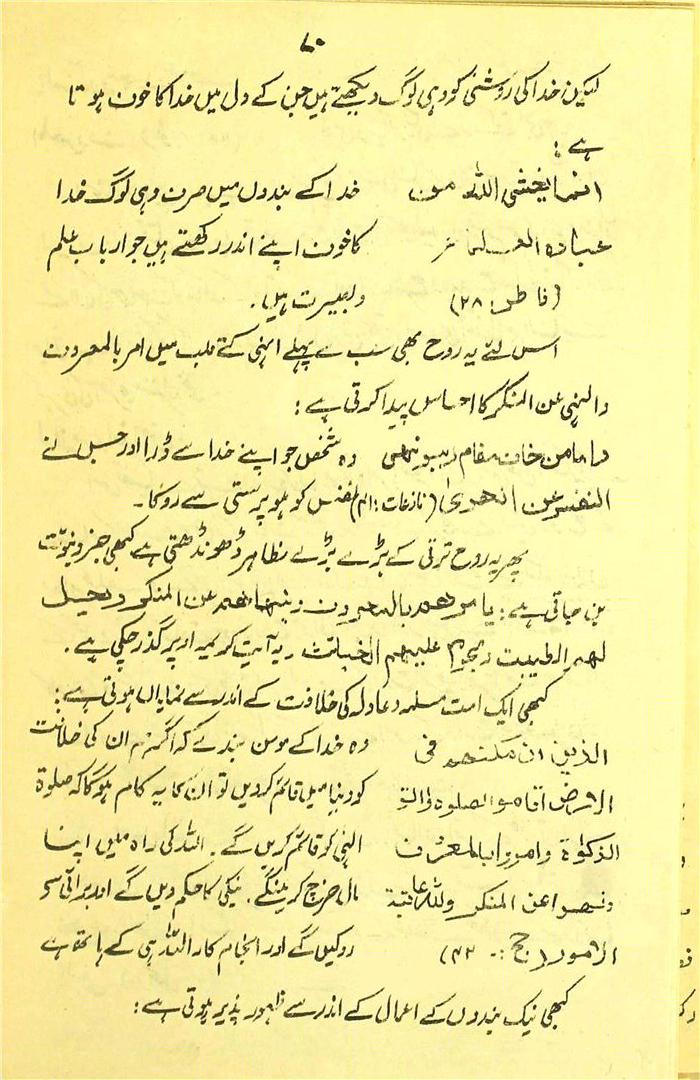 ۷۰
لیکن خدا کی روشنی کو وہی لوگ دیکھتے ہیں جن کے دل میں خدا کا خون ہوتا
ہے :
انما یخشی اللہ من خدا کے بندوں میں صرف وہی لوگ خدا
عبادہ العلماء کا خون اپنے اندر رکھتے ہیں جو ارباب علم
(فاطر: ۲۸) وبصیرت ہیں۔
اس لئے یہ روح بھی سب سے پہلے انہی کے قلب میں امر بالمعروف
والنہی عن المنکر کا احساس پیدا کرتی ہے :
واما من خاف مقام ربہ ونھی وہ شخص جو اپنے خدا سے ڈرا اور جس نے
النفس عن الھوی (نازعات : ۴۱) نفس کو ہو پرستی سے روکا۔
پھر یہ روح ترقی کے بڑے بڑے مظاہر ڈھونڈھتی ہے کبھی جزو نبوت
بن جاتی ہے : یامرھم بالمعروف وینھاھم عن المنکر ویحل
لھم الطیبت ویحرم علیھم الخبائث ۔ یہ آیت کریمہ اوپر گذر چکی ہے۔
کبھی ایک امت مسلمہ و عادلہ کی خلافت کے اندر سے نمایاں ہوتی ہے :
الذین ان مکنھم فی وہ خدا کے مومن بندے کہ اگر ہم ان کی خلافت
الارض اقاموا الصلوہ واتو کو دنیا میں قائم کر دیں تو ان کا یہ کام ہوگا کہ صلوۃ
الزکوٰۃ وامروا بالمعرف الہٰی کو قائم کریں گے۔ اللہ کی راہ میں اپنا
ونھوا عن المنکر وللہ عاقبۃ مال خرچ کرینگے۔ نیکی کا حکم دیں گے اور برائی سے
الامور (حج : ۴۲) روکیں گے اور انجام کار اللہ ہی کے ہاتھ ہے
کبھی نیک بندوں کے اعمال کے اندر سے ظہور پذیر ہوتی ہے :